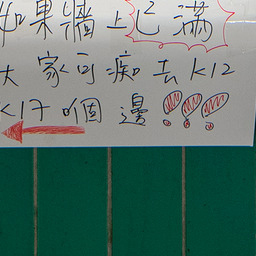 如果牆上已滿
大家可痴去K12
K17 嗰個邊!!!